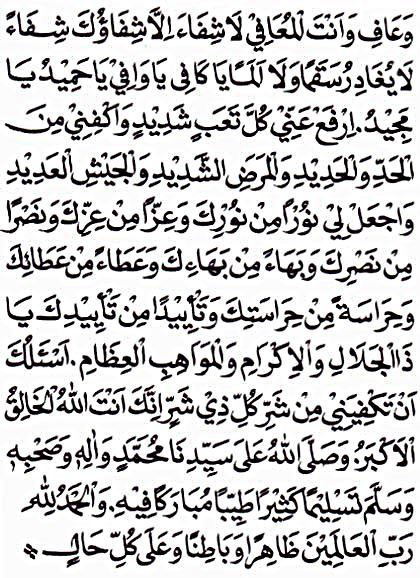 وَعَافِ وَاَنْتَ لْمُعَافِي لَا شِفَاءَ اِلَّا شِفَاؤُكَ شِفَاءً
لَا يُغَادِرُ سَقَمًا وَلَا اَلَمًا يَا كَافِى يَا وَافِي يَا حَمِيدُ يَا
مَجِيْدُ. اِرْفَعْ عَنِّي كُلَّ تَعَبٍ شَدِيْدٍ وَاكْفِنِيْ مِنَ
الْحَدِّ وَالْحَدِيْدِ وَالْمَرَضِ الشَّدِيْدِ وَالْجَيْشِ الْعَدِيْدِ
وَاجْعَلْ لِيْ نُوْرًا مِنْ نُوْرِكَ وَعِزًّا مِنْ عِزِّكَ وَنَصْرًا
مِنْ نَصْرِكَ وَبَهَاءً مِنْ بَهَاءِكَ وَعَطَاءً مِنْ عَطَائِكَ
وَحِرَاسَةً مِنْ حِرَاسَتِكَ وَتَأْيِيْدًا مِنْ تَأْيِيْدِكَ يَا
ذَالْجَلَالِ وَالْاِكْرَامِ وَالْمَوَاهِبِ الْعِظَامِ. اَسْئَلُكَ
اَنْ تَكْفِيَنِيْ مِنْ شَرِّ كُلِّ ذِيْ شَرٍّ اِنَّكَ اَنْتَ اللهُ الْخَالِقُ
الْاَكْبَرُ؛ وَصَلَّى اللهُ عَلَى سَيِّدِنَا مُحَمَّدٍ وَاٰلِهٖ وَصَحْبِهٖ
وَسَلَّمَ تَسْلِيْمًا كَثِيْرًا طَيِّبًا مُبَارَكًا فِيْهِ. وَالْحَمْدُ لِلّٰهِ
رَبِّ الْعَالَمِيْنَ ظَاهِرًا وَبَاطِنًا وَعَلَى كُلِّ حَالٍ